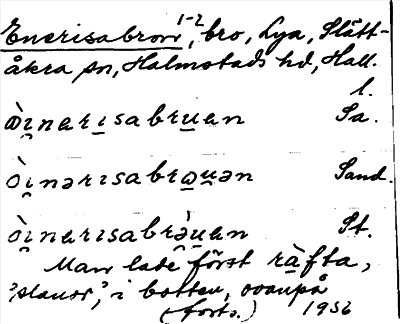 Enerisabron 1-2, bro, Lya, Slätt-
åkra sn, Halmstads hd, Hall.
l.
òi̯narısabrṳan Sa.
òi̯nərısabrωṳən Sand.
òi̯narısabrə̀ṳan St.
Man lade först ràfta,
"slanor", i botten, ovanpå
(forts.) 1956